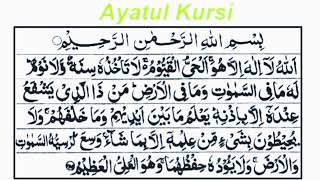 Ayatul Kursi
بِسْمِ اللهِ الرَّحْمٰنِ الرَّحِيْمِ
اَللهُ لَا اِلٰهَ اِلَّا هُوَ اَلْحَيُّ الْقَيُّوْمُ لَا تَأْخُذُهٗ سِنَةٌ وَّلَا نَوْمٌ لَهٗ
مَا فِى السَّمٰوٰتِ وَمَا فِى الْاَرْضِ مَنْ ذَا الَّذِىْ يَشْفَعُ
عِنْدَهٗ اِلَّا بِاِذْنِهٖ يَعْلَمُ مَا بَيْنَ اَيْدِيْهِمْ وَمَا خَلْفَهُمْ وَلَا
يُحِيْطُوْنَ بِشَىْءٍ مِّنْ عِلْمِهٖ اِلَّا بِمَا شَآءَ وَسِعَ كُرْسِيُّهُ السَّمٰوٰتِ
وَالْاَرْضَ وَلَا يَئُوْدُهٗ حِفْظُهُمَا وَهُوَ الْعَلِىُّ الْعَظِيْمُ